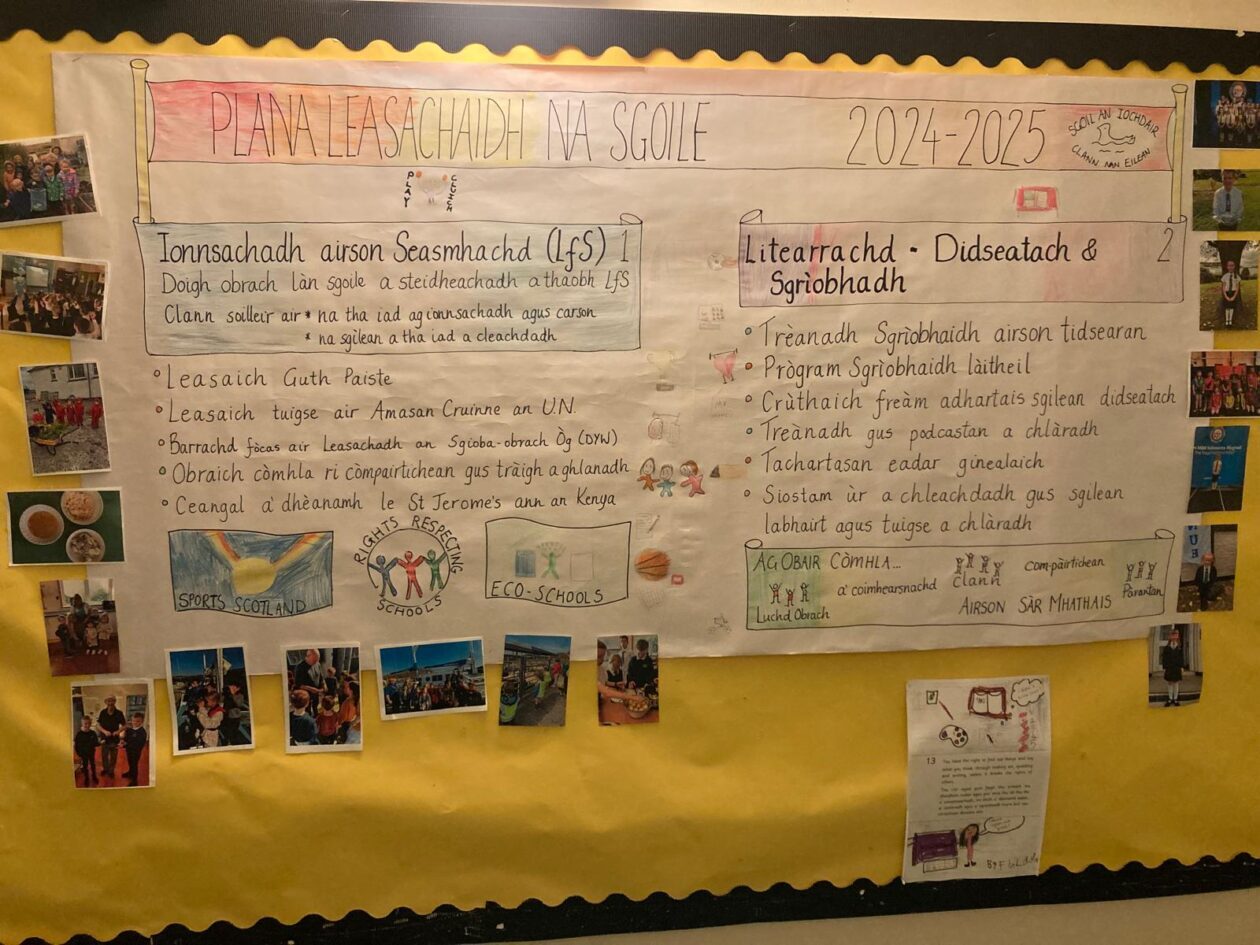 PLANA LEASACHAIDH NA SGOILE 2024-2025
SGOIL AN IOCHDAIR
CLANN NAN EILEAN
PLAY
CLUICH
Ionnsachadh airson Seasmhachd (LfS) 1
Doigh obrach làn sgoile a steidheachadh a thaobh LfS
Clann soilleir air * na tha iad ag ionnsachadh agus carson
* na sgilean a tha iad a cleachdadh
• Leasaich Guth Paiste
• Leasaich tuigse air Amasan Cruinne an U.N.
• Barrachd fòcas air Leasachadh an Sgioba-obrach Òg (DYW)
• Obraich còmhla ri còmpairtichean gus tràigh a ghlanadh
• Ceangal a' dhèanamh le St Jerome's ann an Kenya
SPORTS SCOTLAND
RIGHTS RESPECTING
SCHOOLS
ECO-SCHOOLS
Litearrachd - Didseatach & 2
Sgrìobhadh
• Trèanadh Sgrìobhaidh airson tidsearan
• Prògram Sgrìobhaidh làitheil
• Crùthaich freàm adhartais sgilean didseatach
• Treànadh gus podcastan a chlàradh
• Tachartasan eadar ginealaich
• Siostam ùr a chleachdadh gus sgilean
labhairt agus tuigse a chlàradh
AG OBAIR CÒMHLA...
Luchd Obrach
a' coimhearsnachd
Clann
com-pàirtichean
Pàrantan
AIRSON SÀR MHATHAIS
13